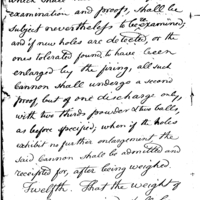 examination and proofs, shall be
subject nevertheless to be examined;
and if new holes are detected, or the
ones tolerated found to have been
enlarged by the firing, all such
Cannon shall undergo a second
proof, but of one discharge only,
with two thirds powder & two balls,
as before specified; when if the holes
exhibit no further enlargement, the
said Cannon shall be admitted and
receipted for, after being weighed.
Twelfth. That the weight of